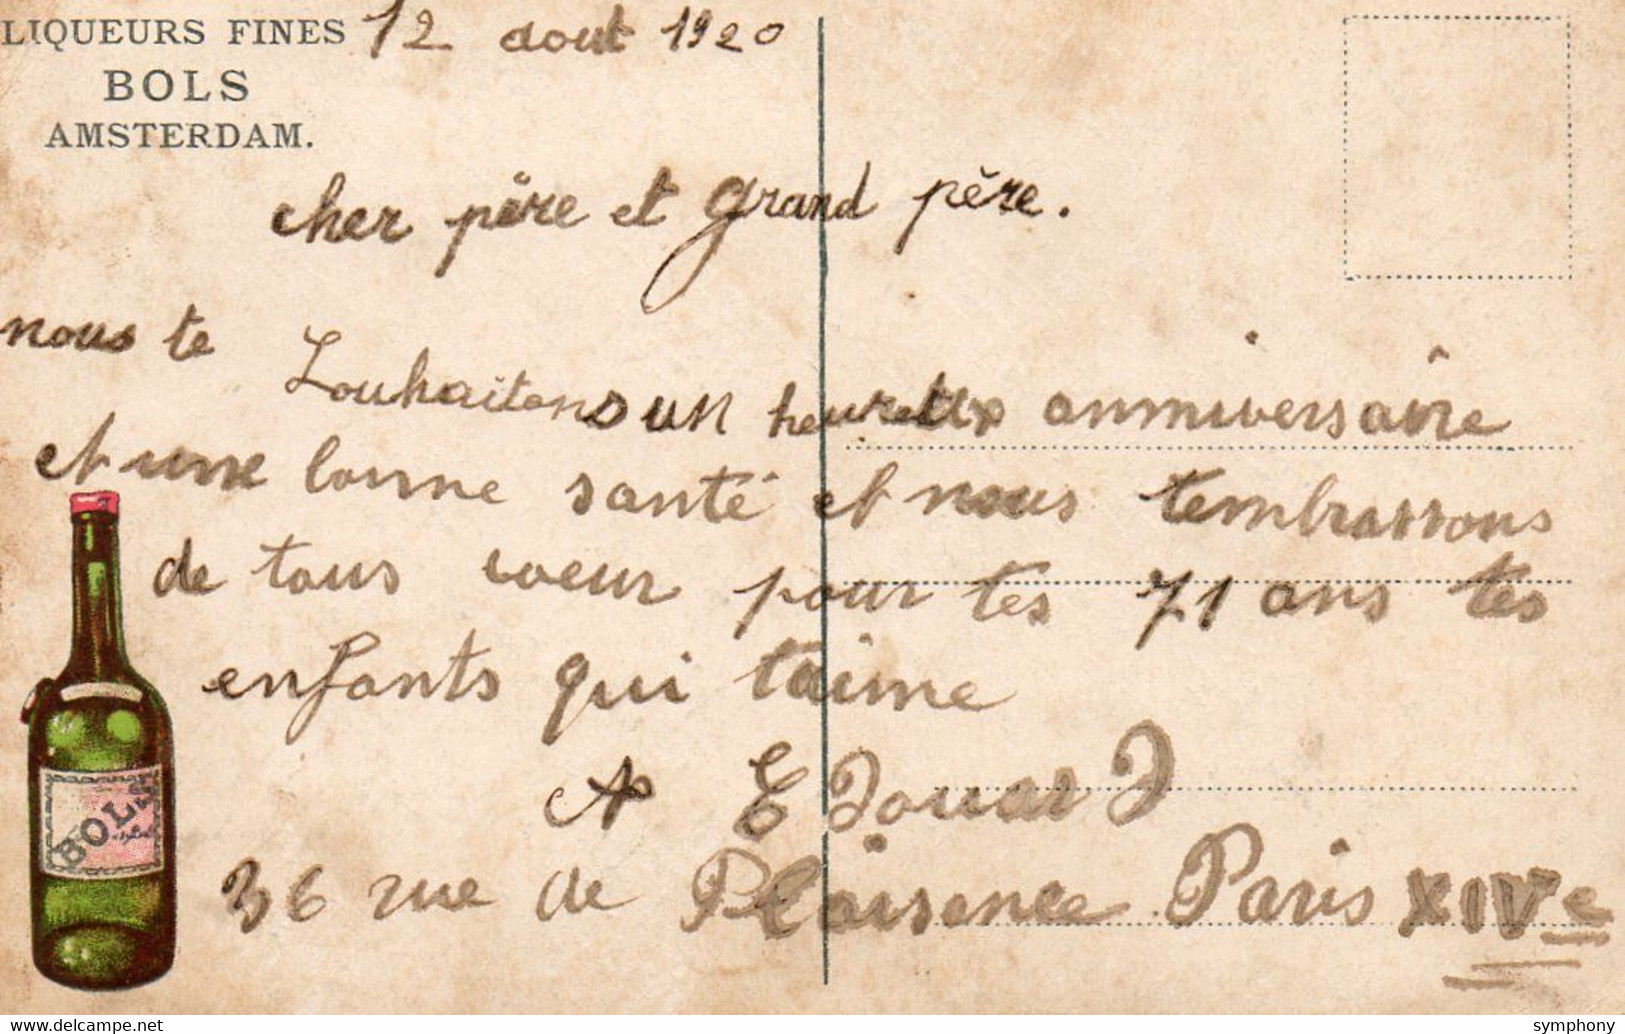 LIQUEURS FINES
BOLS
AMSTERDAM.
12 aout 1920
cher père et grand père.
nous te Souhaitons un heureux anniversaire
et une bonne santé et nous tembrassons
de tous coeur pour tes 71 ans tes
enfants qui taime
A EDouarD
36 rue de Plaisence Paris XIVe
BOLS
symphony